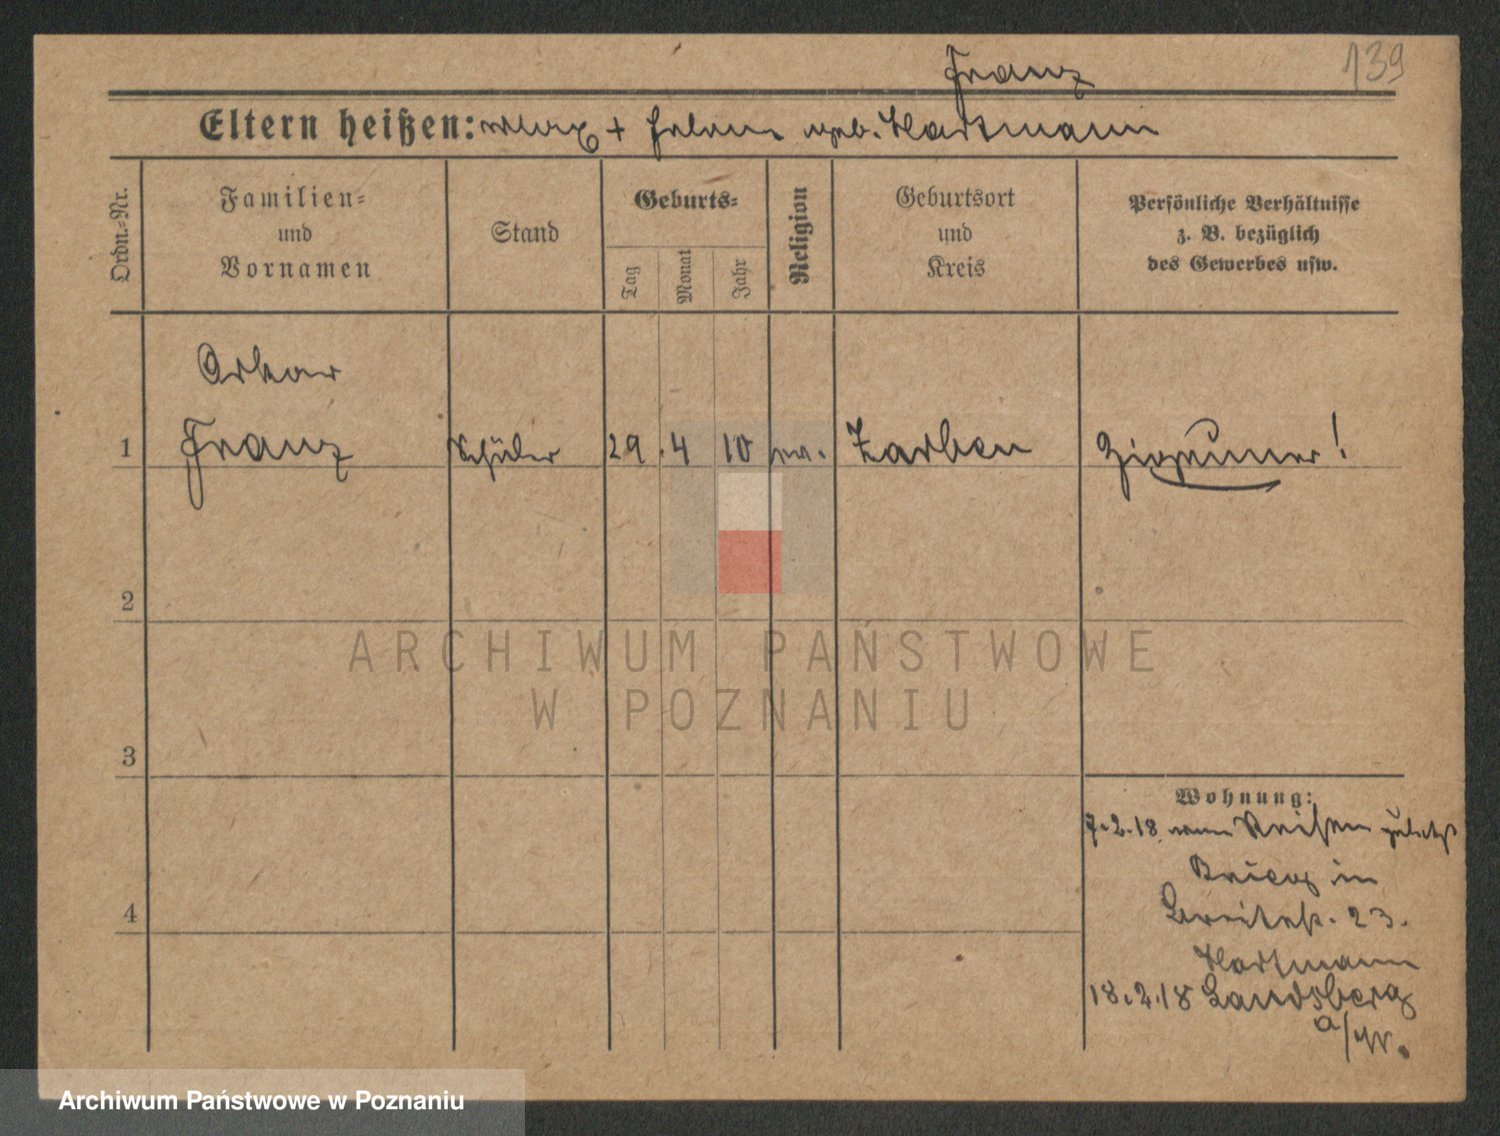 139
Franz
Eltern heißen: Max + Helene geb. Hartmann
Ordn.-Nr.
Familien-
und
Vornamen
Stand
Geburts-
Tag
Monat
Jahr
Religion
Geburtsort
und
Kreis
Persönliche Verhältnisse
z. B. bezüglich
des Gewerbes usw.
Oskar
1 Franz Schüler 29. 4 10 ev. Zarben Zigeuner!
2
3
4
Wohnung:
7.2.18 von Reisen zuletzt
Brieg in
Breitestr. 23.
Hartmann
18.2.18 Landsberg
a/W.
ARCHIWUM PAŃSTWOWE
W POZNANIU
Archiwum Państwowe w Poznaniu